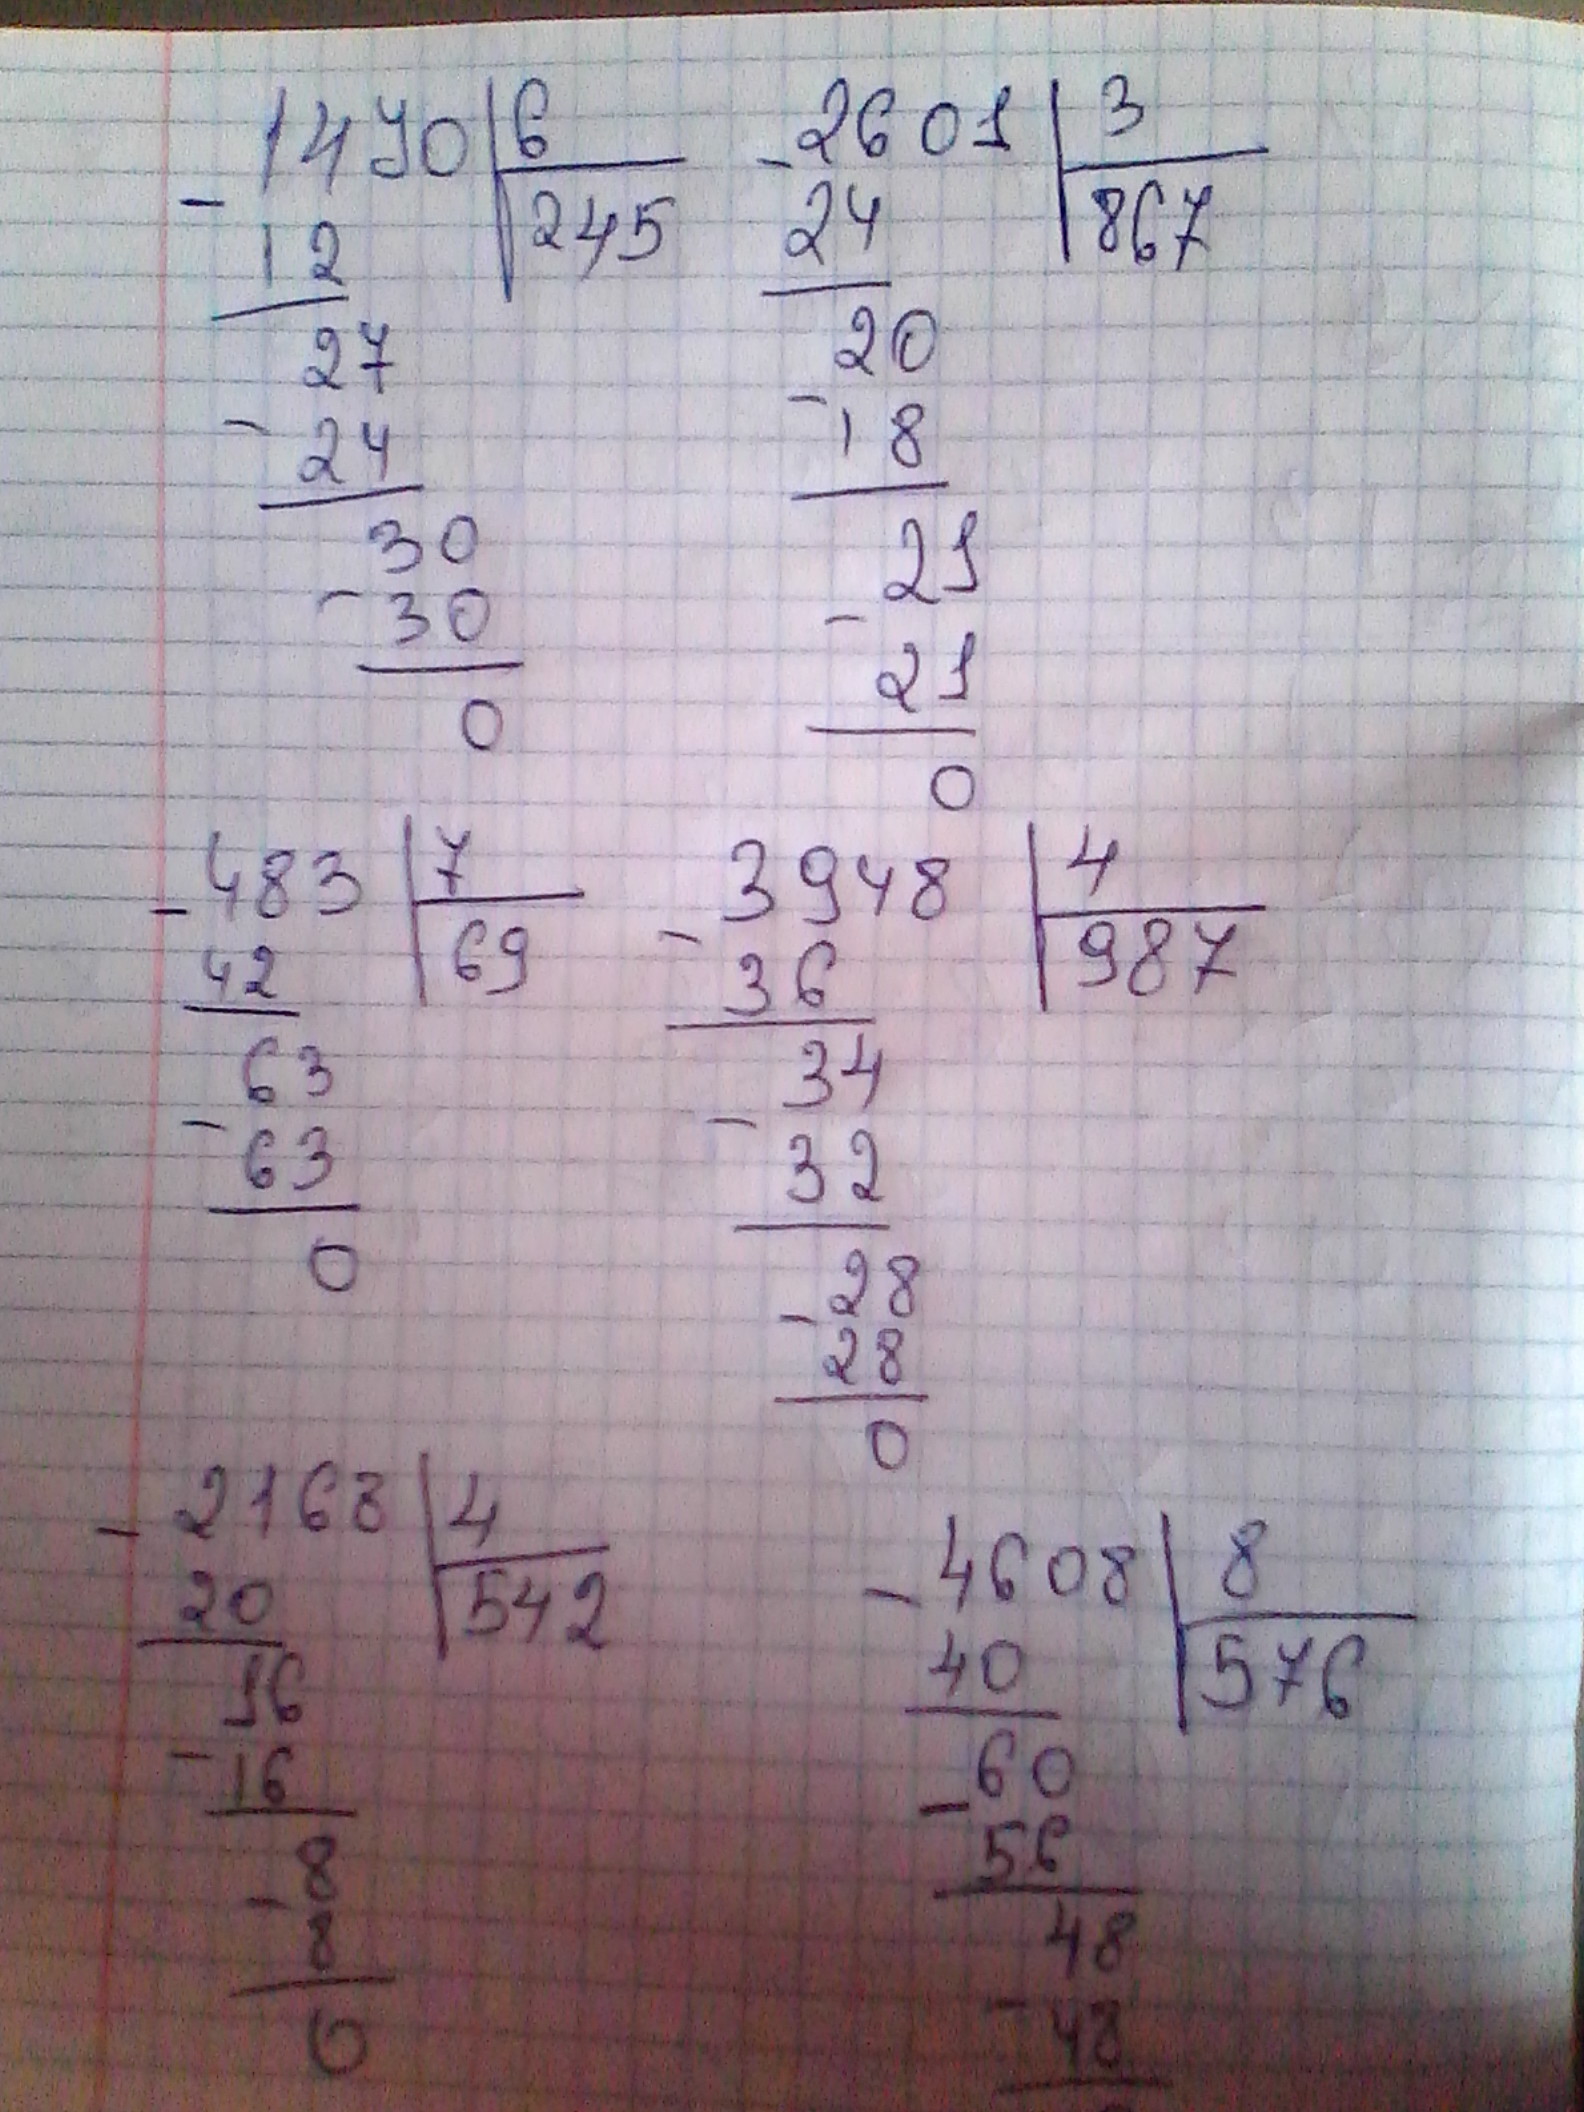 1470 6
- 12 245
27
- 24
30
- 30
0
- 2601 3
24 867
20
- 18
21
- 21
0
- 483 7
42 69
63
- 63
0
3948 4
- 36 987
34
- 32
28
- 28
0
- 2168 4
20 542
16
- 16
8
- 8
0
- 4608 8
40 576
60
- 56
48
- 48